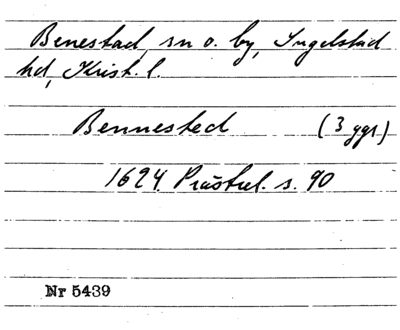 Benestad, sn o. by, Ingelstad
hd, Krist. l.
Bennested (3 ggr)
1624 Prästrel. s. 90
Nr 5439